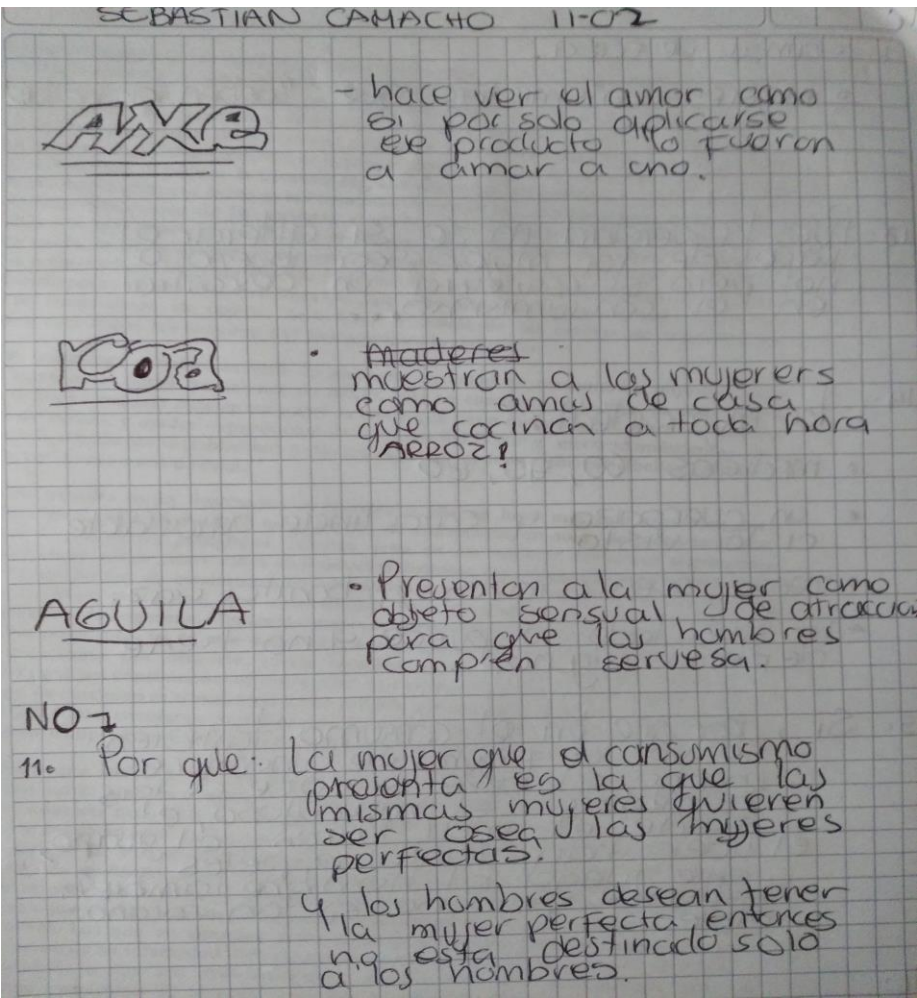 SEBASTIAN CAMACHO 11-02
AXE
- hace ver el amor como
si por solo aplicarse
ese producto lo fueron
a amar a uno.
Roa
• maderes
muestran a las mujerers
como amas de casa
que cocinan a toda hora
ARROZ!
AGUILA
• Presentan ala mujer como
objeto sensual, de atraccion
para que los hombres
compren servesa.
NO
11. Por que: la mujer que el consumismo
presenta es la que las
mismas mujeres quieren
ser osea las mujeres
perfectas.
y los hombres desean tener
la mujer perfecta entonces
no esta destinado solo
a los hombres.